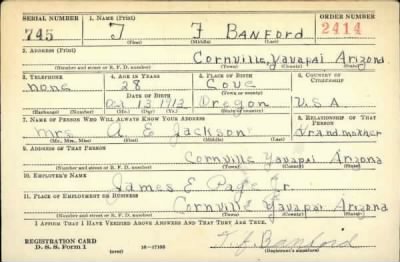 SERIAL NUMBER 1. NAME (Print) ORDER NUMBER
745 T F BANFORD 2414
(First) (Middle) (Last)
2. ADDRESS (Print)
Cornville, Yavapai Arizona
(Number and street or R. F. D. number) (Town) (County) (State)
3. TELEPHONE 4. AGE IN YEARS 5. PLACE OF BIRTH 6. COUNTRY OF CITIZENSHIP
none 28 Cove
DATE OF BIRTH (Town or county)
Oct 13 1912 Oregon U.S.A
(Exchange) (Number) (Mo.) (Day) (Yr.) (State or country)
7. NAME OF PERSON WHO WILL ALWAYS KNOW YOUR ADDRESS 8. RELATIONSHIP OF THAT PERSON
Mrs A E Jackson Grandmother
(Mr., Mrs., Miss) (First) (Middle) (Last)
9. ADDRESS OF THAT PERSON
Cornville Yavapai Arizona
(Number and street or R. F. D. number) (Town) (County) (State)
10. EMPLOYER'S NAME
James E Page Jr.
11. PLACE OF EMPLOYMENT OR BUSINESS
Cornville Yavapai Arizona
(Number and street or R. F. D. number) (Town) (County) (State)
I AFFIRM THAT I HAVE VERIFIED ABOVE ANSWERS AND THAT THEY ARE TRUE.
REGISTRATION CARD
D. S. S. Form 1 (over) 16-17105 T. F. Banford
(Registrant's signature)